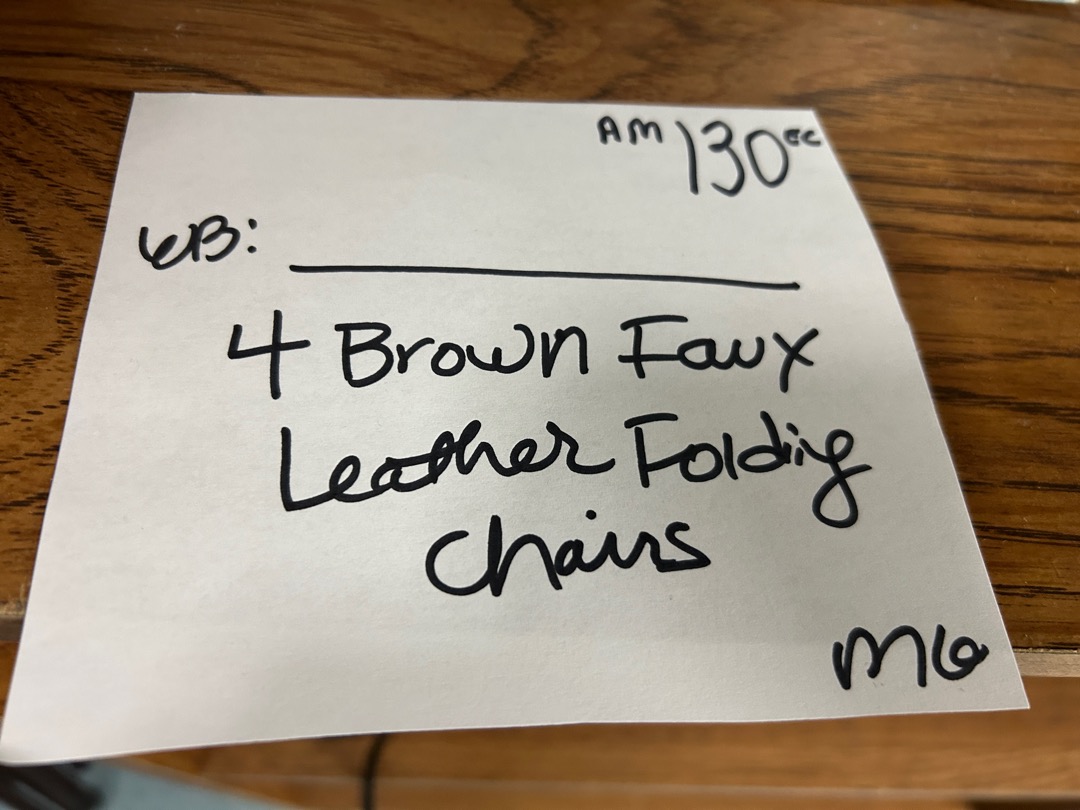 AM 130
6B:
4 Brown Faux
Leather Folding
Chairs